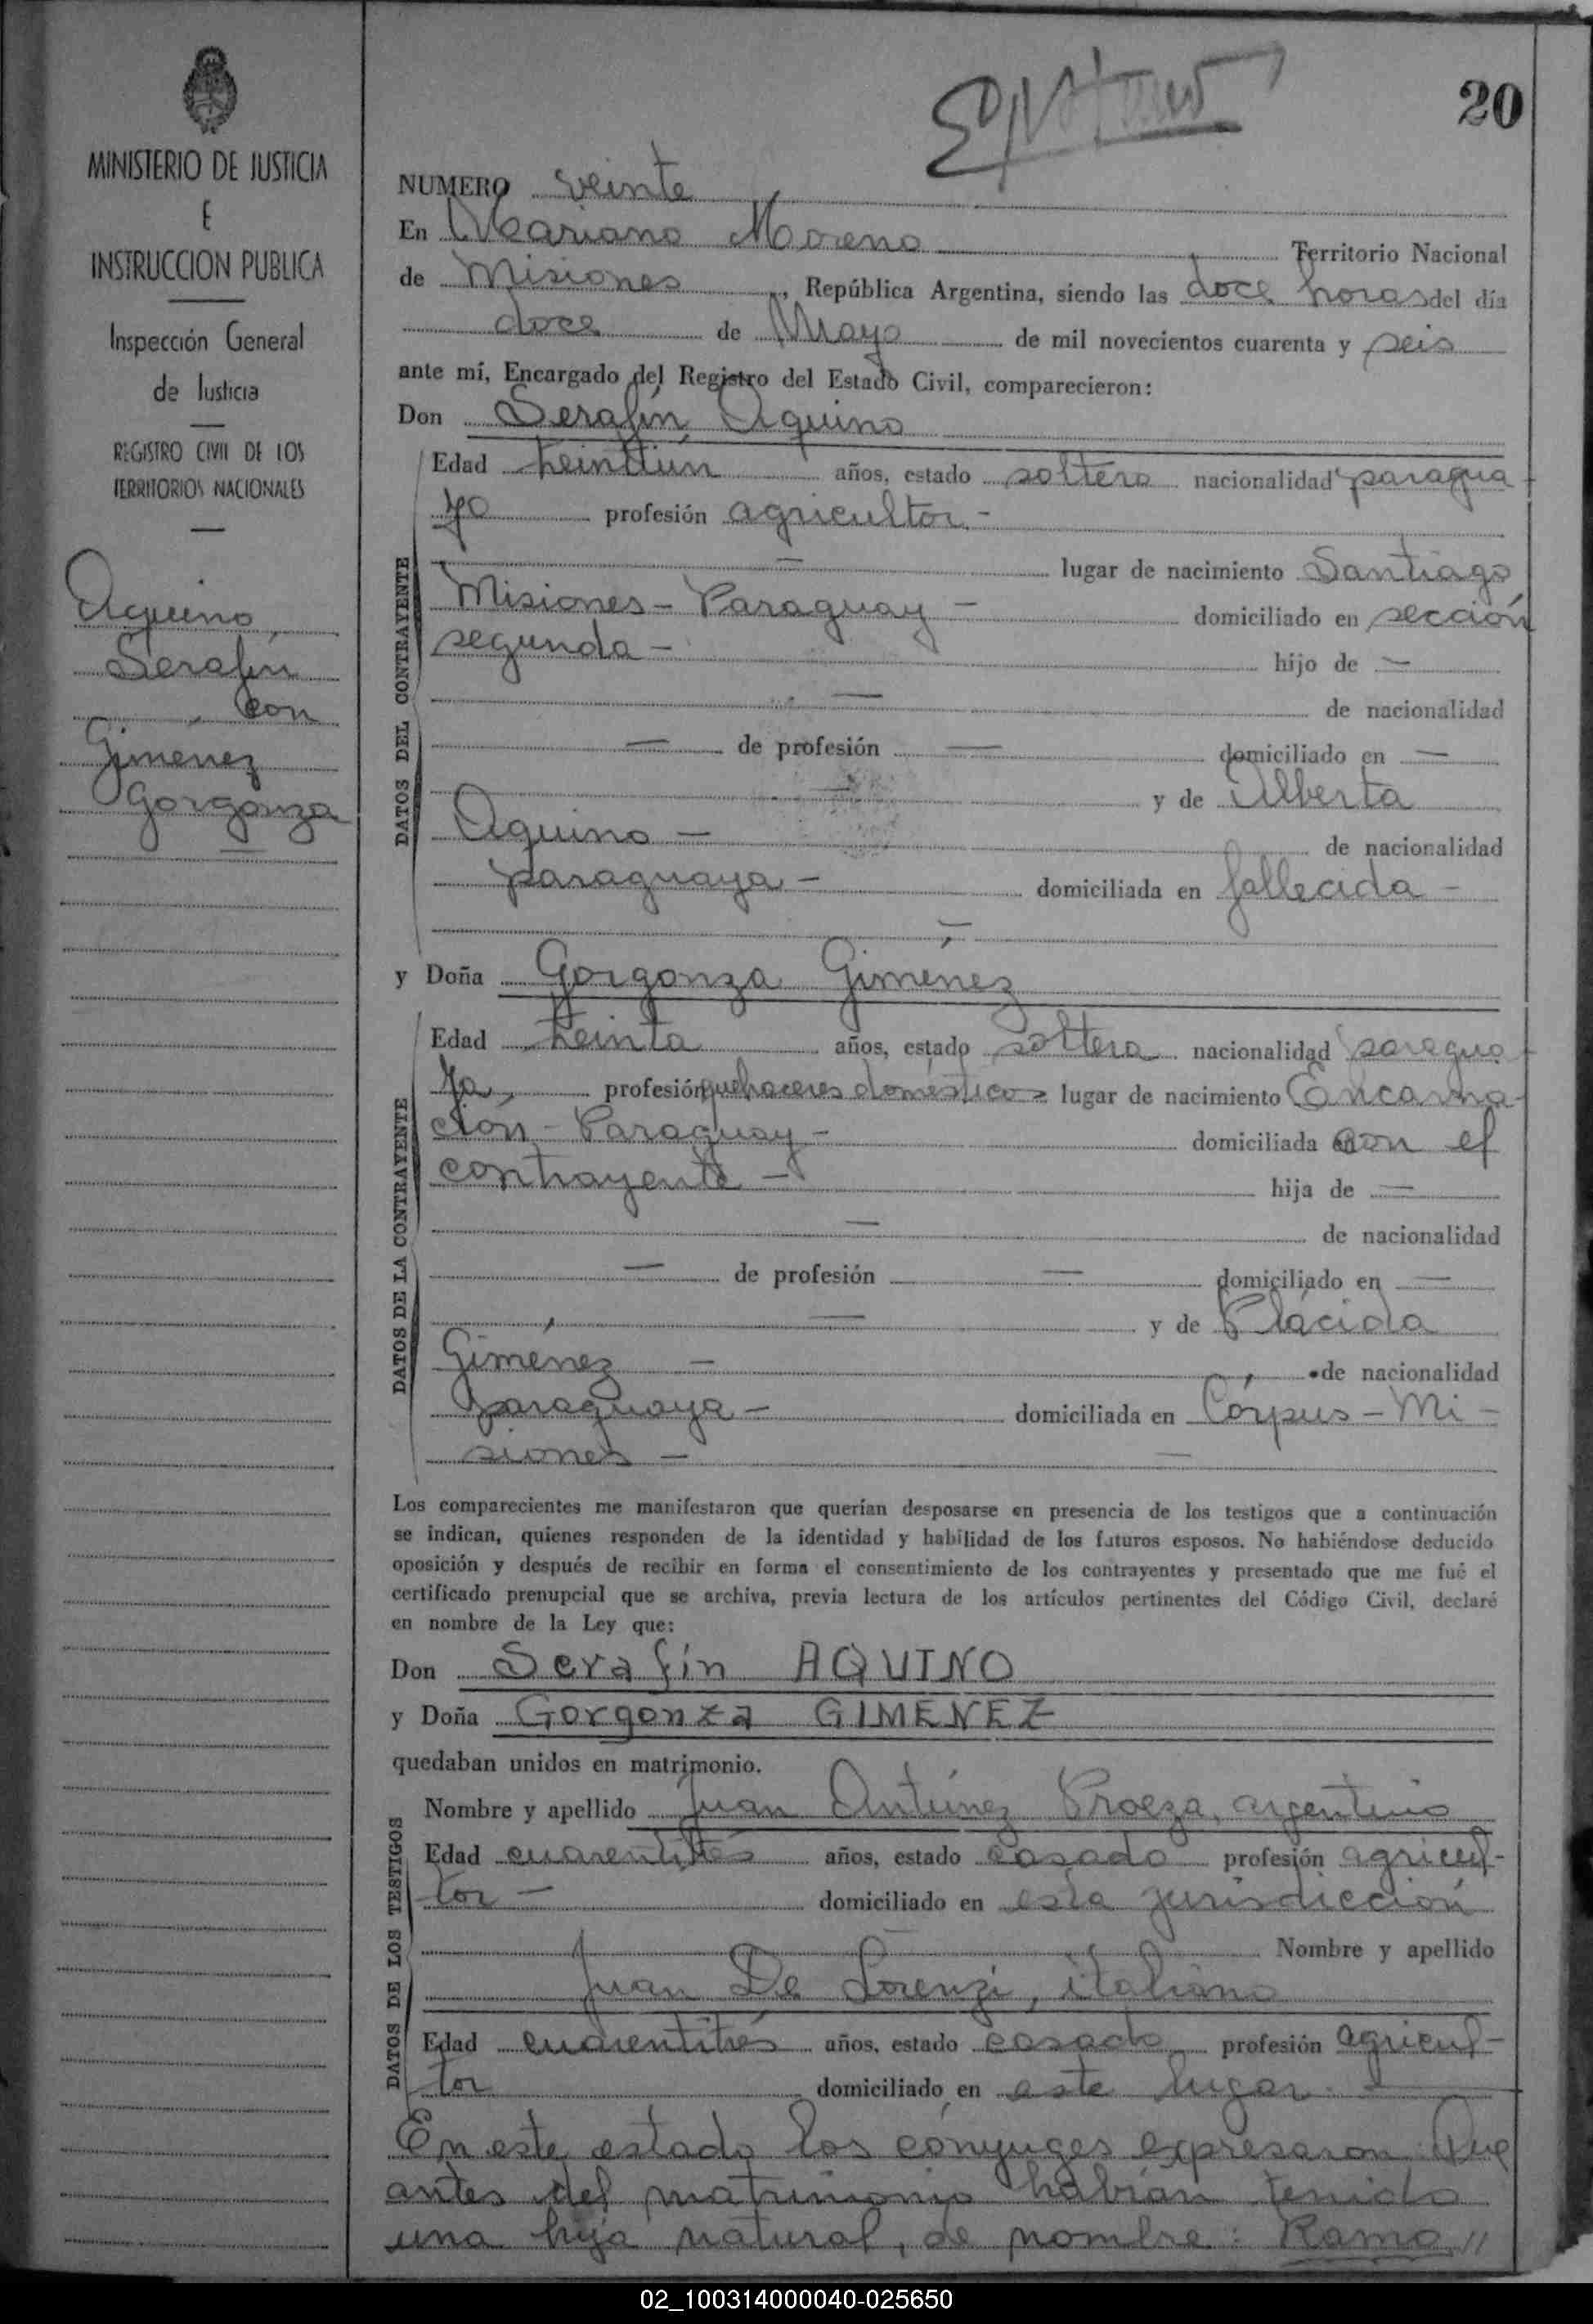 20
MINISTERIO DE JUSTICIA
E
INSTRUCCION PUBLICA
Inspección General
de Justicia
REGISTRO CIVIL DE LOS
TERRITORIOS NACIONALES
Aquino,
Serafín
con
Giménez
Gorgonza
NUMERO veinte
En Mariano Moreno Territorio Nacional
de Misiones, República Argentina, siendo las doce horas del día
doce de Mayo de mil novecientos cuarenta y seis
ante mí, Encargado del Registro del Estado Civil, comparecieron:
Don Serafín Aquino
DATOS DEL CONTRAYENTE
Edad treintiún años, estado soltero nacionalidad paragua
yo profesión agricultor.-
— lugar de nacimiento Santiago
Misiones - Paraguay - domiciliado en sección
segunda - hijo de —
— de nacionalidad
— de profesión — domiciliado en —
— y de Alberta
Aquino — de nacionalidad
paraguaya - domiciliada en fallecida -
—
y Doña Gorgonza Giménez
DATOS DE LA CONTRAYENTE
Edad treinta años, estado soltera nacionalidad paragua
ya, profesión quehaceres domésticos lugar de nacimiento Encarna-
ción - Paraguay - domiciliada con el
contrayente - hija de —
— de nacionalidad
— de profesión — domiciliado en —
— y de Plácida
Giménez — de nacionalidad
paraguaya - domiciliada en Córpus - Mi -
siones — —
Los comparecientes me manifestaron que querían desposarse en presencia de los testigos que a continuación
se indican, quienes responden de la identidad y habilidad de los futuros esposos. No habiéndose deducido
oposición y después de recibir en forma el consentimiento de los contrayentes y presentado que me fué el
certificado prenupcial que se archiva, previa lectura de los artículos pertinentes del Código Civil, declaré
en nombre de la Ley que:
Don Serafín AQUINO
y Doña Gorgonza GIMENEZ
quedaban unidos en matrimonio.
DATOS DE LOS TESTIGOS
Nombre y apellido Juan Antúnez Proeza, argentino
Edad cuarentitrés años, estado casado profesión agricul-
tor — domiciliado en esta jurisdicción
Nombre y apellido
Juan De Lorenzi, italiano
Edad cuarentitrés años, estado casado profesión agricul-
tor domiciliado en este lugar. -
En este estado los cónyuges expresaron: Que
antes del matrimonio habían tenido
una hija natural, de nombre: Ramo //
02_100314000040-025650